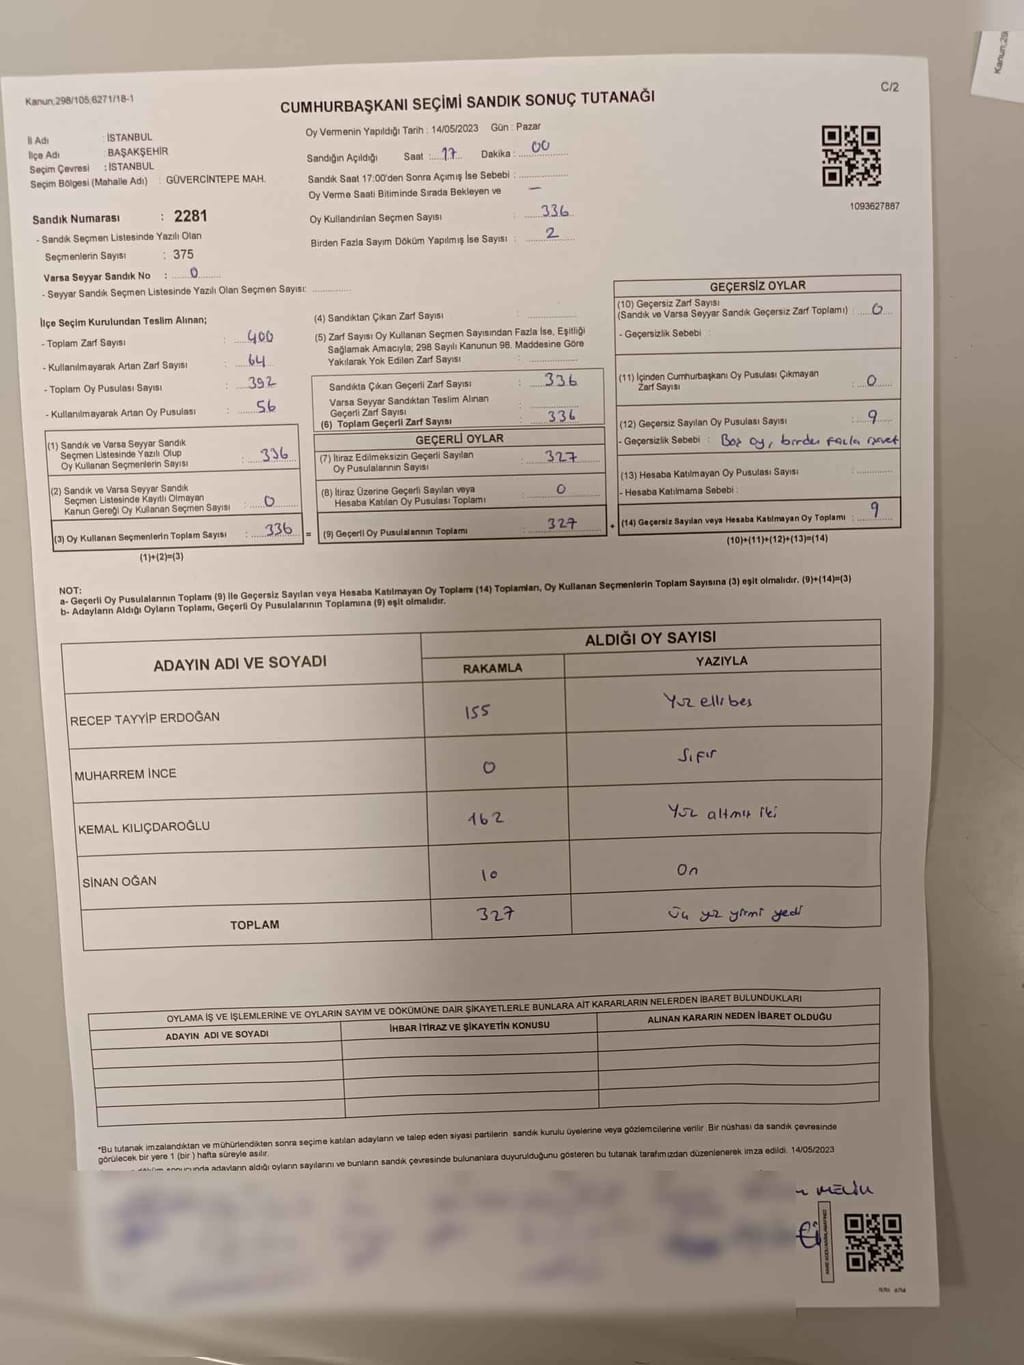 Kanun:298/105;6271/18-1
C/2
CUMHURBAŞKANI SEÇİMİ SANDIK SONUÇ TUTANAĞI
İl Adı : İSTANBUL
İlçe Adı : BAŞAKŞEHİR
Seçim Çevresi : İSTANBUL
Seçim Bölgesi (Mahalle Adı) : GÜVERCİNTEPE MAH.
Sandık Numarası : 2281
- Sandık Seçmen Listesinde Yazılı Olan
Seçmenlerin Sayısı : 375
Varsa Seyyar Sandık No : 0
- Seyyar Sandık Seçmen Listesinde Yazılı Olan Seçmen Sayısı:
Oy Vermenin Yapıldığı Tarih : 14/05/2023 Gün : Pazar
Sandığın Açıldığı Saat : 17 Dakika : 00
Sandık Saat 17:00'den Sonra Açımış İse Sebebi :
Oy Verme Saati Bitiminde Sırada Bekleyen ve —
Oy Kullandırılan Seçmen Sayısı : 336
Birden Fazla Sayım Döküm Yapılmış İse Sayısı : 2
1093627887
İlçe Seçim Kurulundan Teslim Alınan;
- Toplam Zarf Sayısı : 400
- Kullanılmayarak Artan Zarf Sayısı : 64
- Toplam Oy Pusulası Sayısı : 392
- Kullanılmayarak Artan Oy Pusulası : 56
(1) Sandık ve Varsa Seyyar Sandık
Seçmen Listesinde Yazılı Olup
Oy Kullanan Seçmenlerin Sayısı : 336
(2) Sandık ve Varsa Seyyar Sandık
Seçmen Listesinde Kayıtlı Olmayan
Kanun Gereği Oy Kullanan Seçmen Sayısı : 0
(3) Oy Kullanan Seçmenlerin Toplam Sayısı : 336
(1)+(2)=(3)
(4) Sandıktan Çıkan Zarf Sayısı :
(5) Zarf Sayısı Oy Kullanan Seçmen Sayısından Fazla İse, Eşitliği
Sağlamak Amacıyla, 298 Sayılı Kanunun 98. Maddesine Göre
Yakılarak Yok Edilen Zarf Sayısı :
Sandıkta Çıkan Geçerli Zarf Sayısı : 336
Varsa Seyyar Sandıktan Teslim Alınan
Geçerli Zarf Sayısı :
(6) Toplam Geçerli Zarf Sayısı : 336
GEÇERLİ OYLAR
(7) İtiraz Edilmeksizin Geçerli Sayılan
Oy Pusulalarının Sayısı : 327
(8) İtiraz Üzerine Geçerli Sayılan veya
Hesaba Katılan Oy Pusulası Toplamı : 0
(9) Geçerli Oy Pusulalarının Toplamı : 327
=
+
GEÇERSİZ OYLAR
(10) Geçersiz Zarf Sayısı
(Sandık ve Varsa Seyyar Sandık Geçersiz Zarf Toplamı) : 0
- Geçersizlik Sebebi :
(11) İçinden Cumhurbaşkanı Oy Pusulası Çıkmayan
Zarf Sayısı : 0
(12) Geçersiz Sayılan Oy Pusulası Sayısı : 9
- Geçersizlik Sebebi : Boş oy, birden fazla evet
(13) Hesaba Katılmayan Oy Pusulası Sayısı :
- Hesaba Katılmama Sebebi :
(14) Geçersiz Sayılan veya Hesaba Katılmayan Oy Toplamı : 9
(10)+(11)+(12)+(13)=(14)
NOT:
a- Geçerli Oy Pusulalarının Toplamı (9) İle Geçersiz Sayılan veya Hesaba Katılmayan Oy Toplamı (14) Toplamları, Oy Kullanan Seçmenlerin Toplam Sayısına (3) eşit olmalıdır. (9)+(14)=(3)
b- Adayların Aldığı Oyların Toplamı, Geçerli Oy Pusulalarının Toplamına (9) eşit olmalıdır.
ADAYIN ADI VE SOYADI
ALDIĞI OY SAYISI
RAKAMLA YAZIYLA
RECEP TAYYİP ERDOĞAN 155 Yüz elli beş
MUHARREM İNCE 0 Sıfır
KEMAL KILIÇDAROĞLU 162 Yüz altmış iki
SİNAN OĞAN 10 On
TOPLAM 327 üç yüz yirmi yedi
OYLAMA İŞ VE İŞLEMLERİNE VE OYLARIN SAYIM VE DÖKÜMÜNE DAİR ŞİKAYETLERLE BUNLARA AİT KARARLARIN NELERDEN İBARET BULUNDUKLARI
ADAYIN ADI VE SOYADI İHBAR İTİRAZ VE ŞİKAYETİN KONUSU ALINAN KARARIN NEDEN İBARET OLDUĞU
*Bu tutanak imzalandıktan ve mühürlendikten sonra seçime katılan adayların ve talep eden siyasi partilerin sandık kurulu üyelerine veya gözlemcilerine verilir. Bir nüshası da sandık çevresinde
görülecek bir yere 1 (bir) hafta süreyle asılır.
adayların aldığı oyların sayılarını ve bunların sandık çevresinde bulunanlara duyurulduğunu gösteren bu tutanak tarafımızdan düzenlenerek imza edildi. 14/05/2023